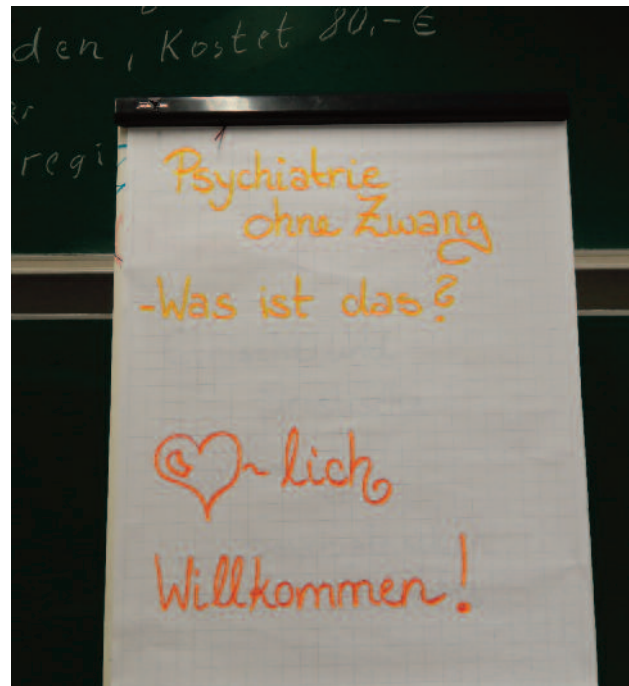 den, Kostet 80,- €
regi
Psychiatrie
ohne Zwang
-Was ist das?
♡~lich
Willkommen!